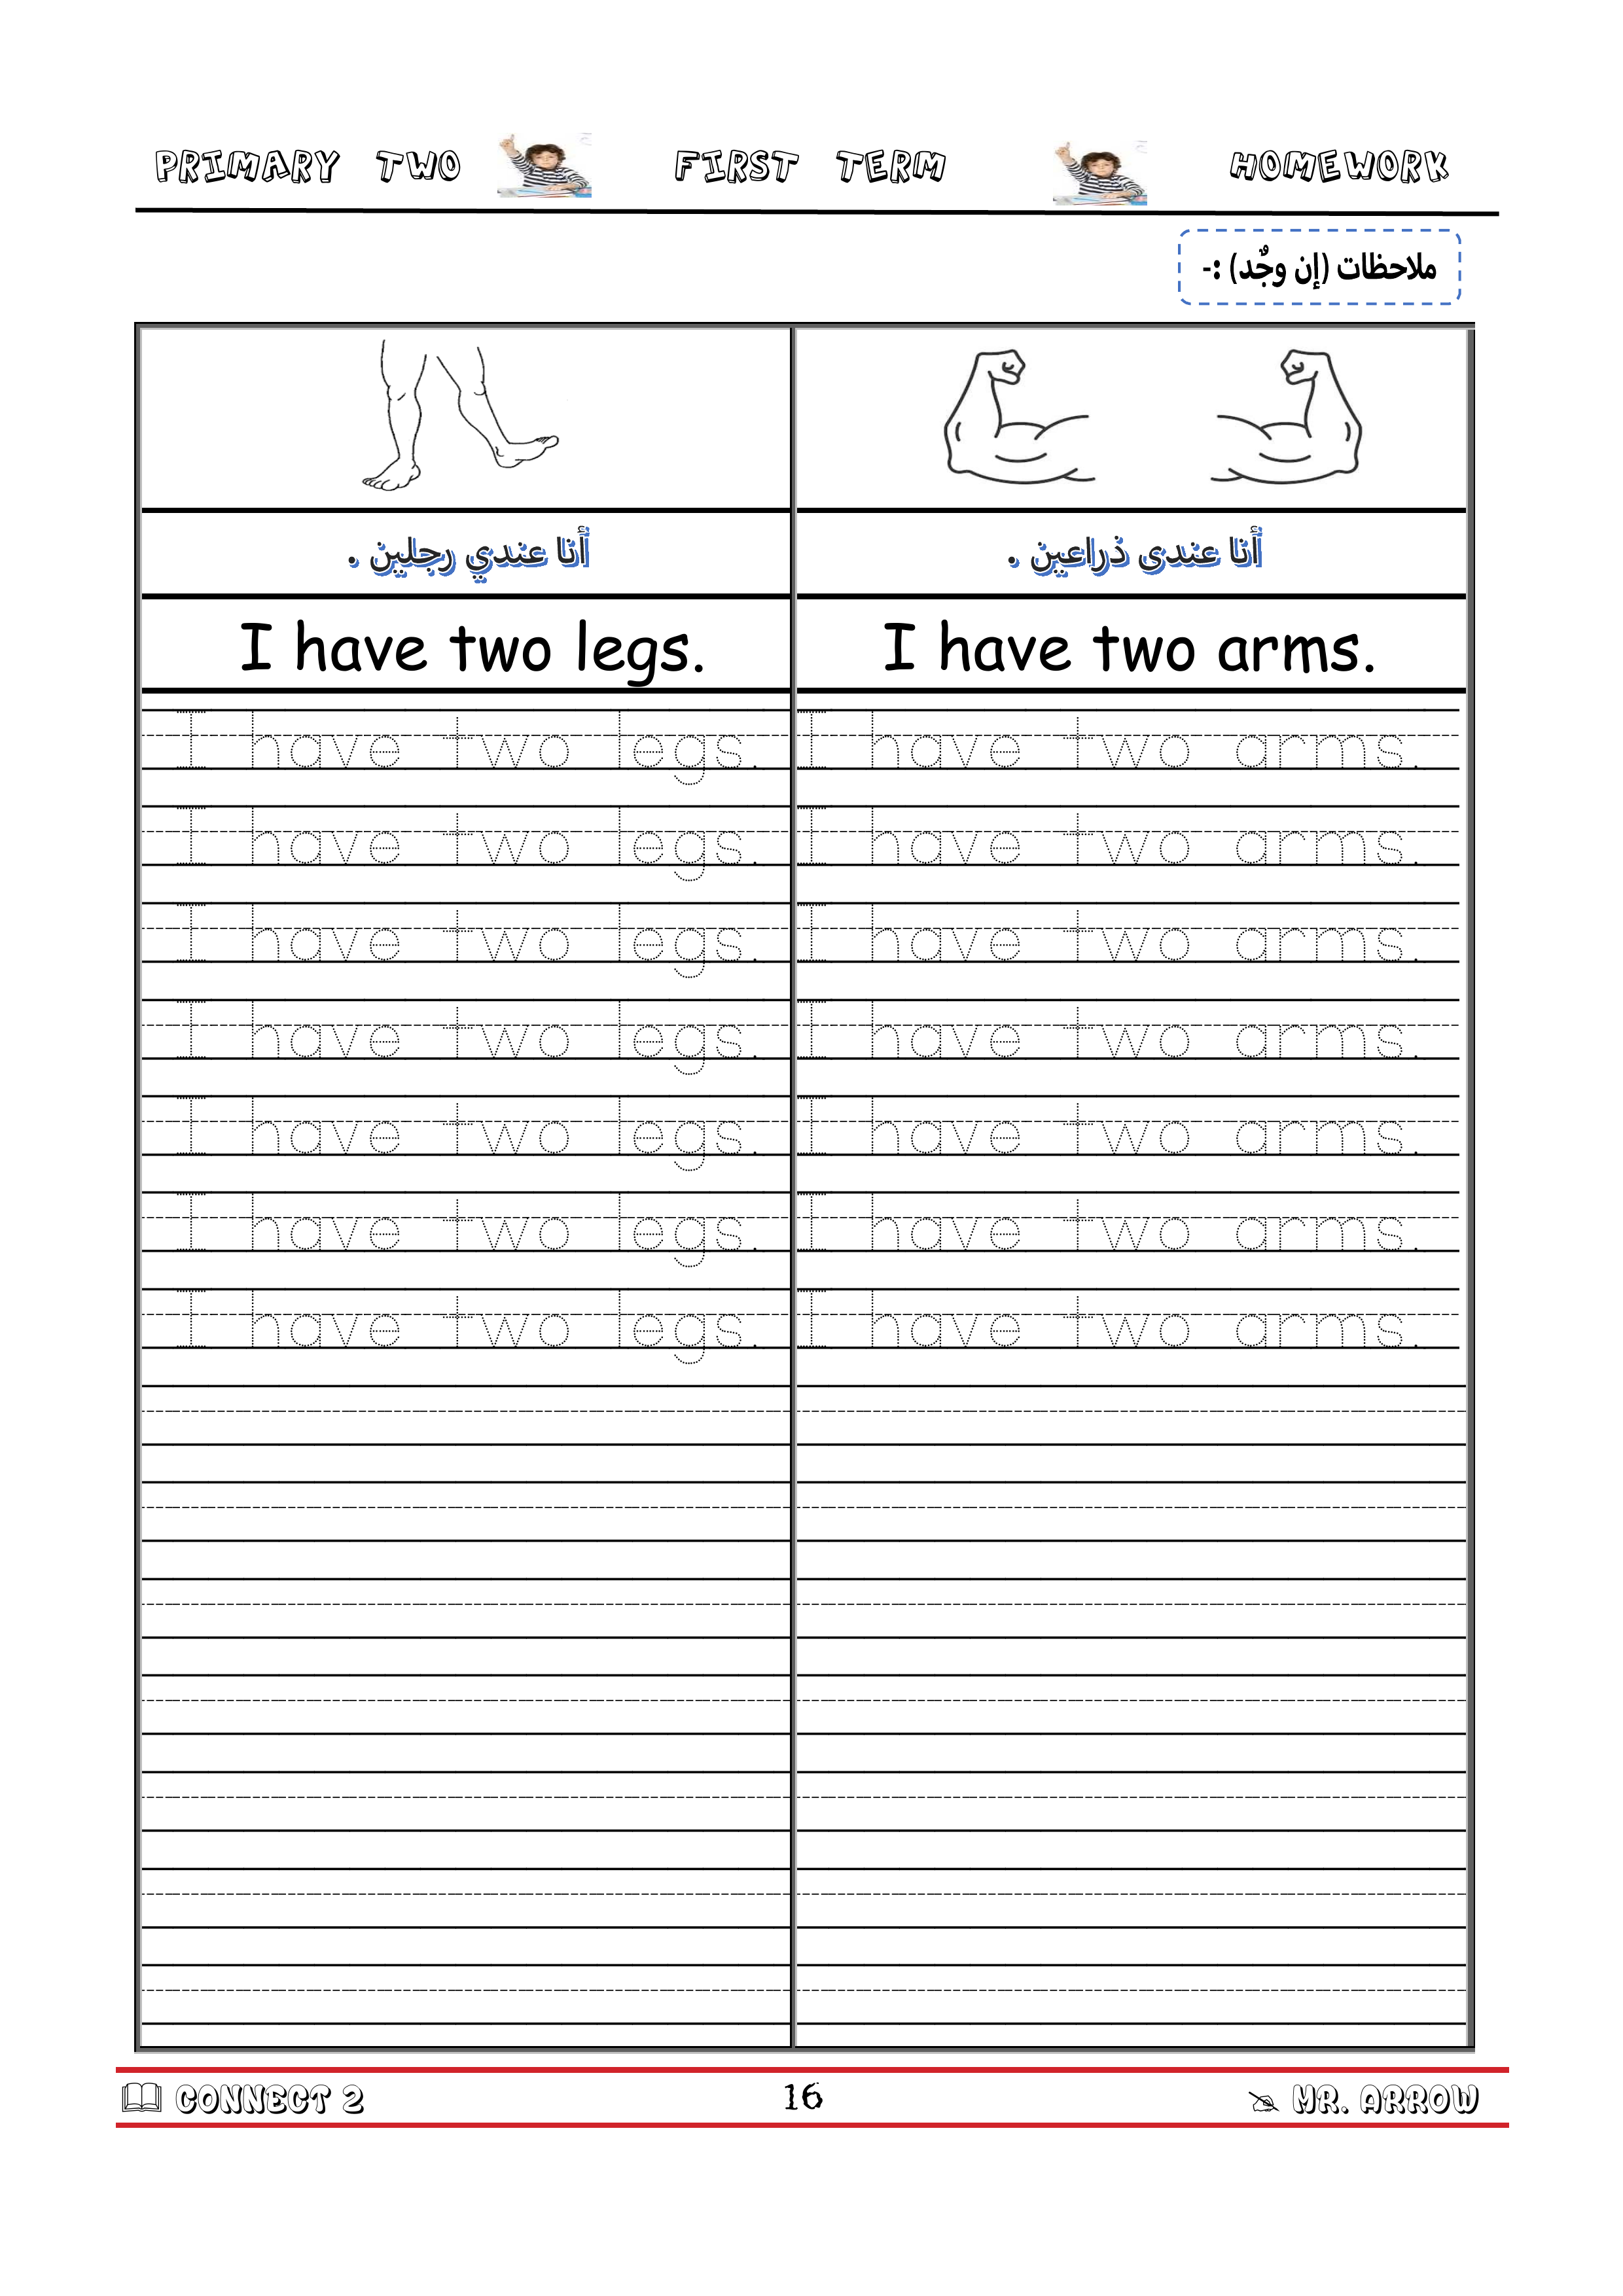 PRIMARY TWO FIRST TERM HOMEWORK
ملاحظات (إن وجٌد) :-
أنا عندي رجلين .
أنا عندى ذراعين .
I have two legs.
I have two arms.
I have two legs. I have two arms.
I have two legs. I have two arms.
I have two legs. I have two arms.
I have two legs. I have two arms.
I have two legs. I have two arms.
I have two legs. I have two arms.
I have two legs. I have two arms.
CONNECT 2 16 MR. ARROW